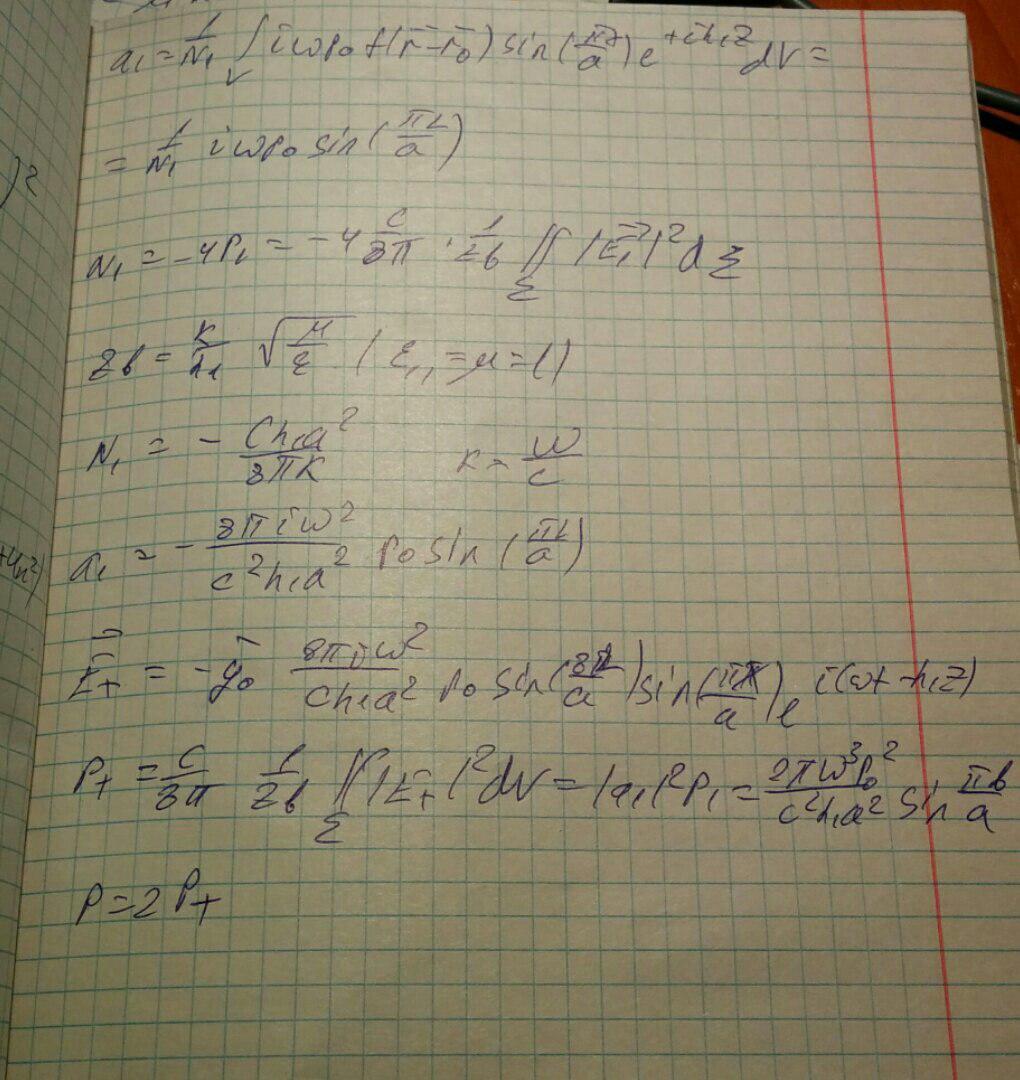 a₁ = 1/N₁ ∫_V iωp₀ f(r̄ - r̄₀) sin(πz/a) e^{+ih₁z} dV =
= 1/N₁ iωp₀ sin(πL/a)
)²
N₁ = -4P₁ = -4 c/8π · 1/z_b ∬_Σ |E⃗₁|² dΣ
z_b = k/h₁ √(μ/ε) (ε,, = μ = 1)
N₁ = - (ch₁a²)/(8πk) k = ω/c
a₁ = - (8πiω²)/(c²h₁a²) p₀ sin(πL/a)
E⃗₊ = -ȳ₀ (8πiω²)/(ch₁a²) p₀ sin(/a) sin(πx/a) e^{i(ωt-h₁z)}
P₊ = c/8π 1/z_b ∬_Σ |Ē₊|² dV = |a₁|²P₁ = (2πω³p₀²)/(c²h₁a²) sin πb/a
P = 2P₊